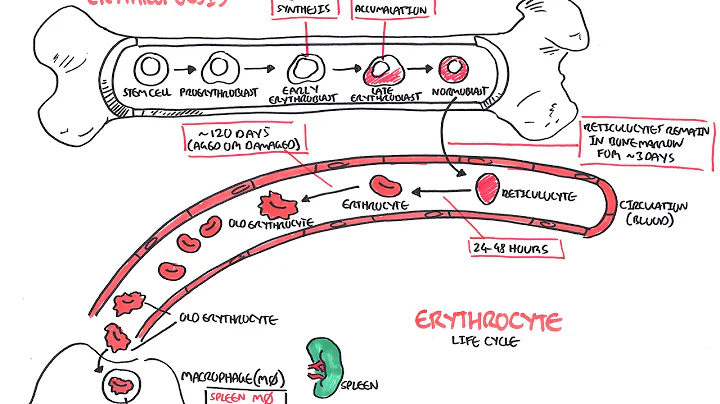 ERYTHROPOESIS
SYNTHESIS
ACCUMALATION
STEM CELL
PROERYTHROBLAST
EARLY
ERYTHROBLAST
LATE
ERYTHROBLAST
NORMOBLAST
~120 DAYS
(AGED OR DAMAGED)
RETICULUCYTES REMAIN
IN BONEMARROW
FOR ~3 DAYS
RETICULUCYTE
ERTHROCYTE
OLD ERYTHROCYTE
CIRCULATION
(BLOOD)
24-48 HOURS
OLD ERYTHROCYTE
ERYTHROCYTE
LIFE CYCLE
MACROPHAGE (MØ)
SPLEEN MØ
SPLEEN